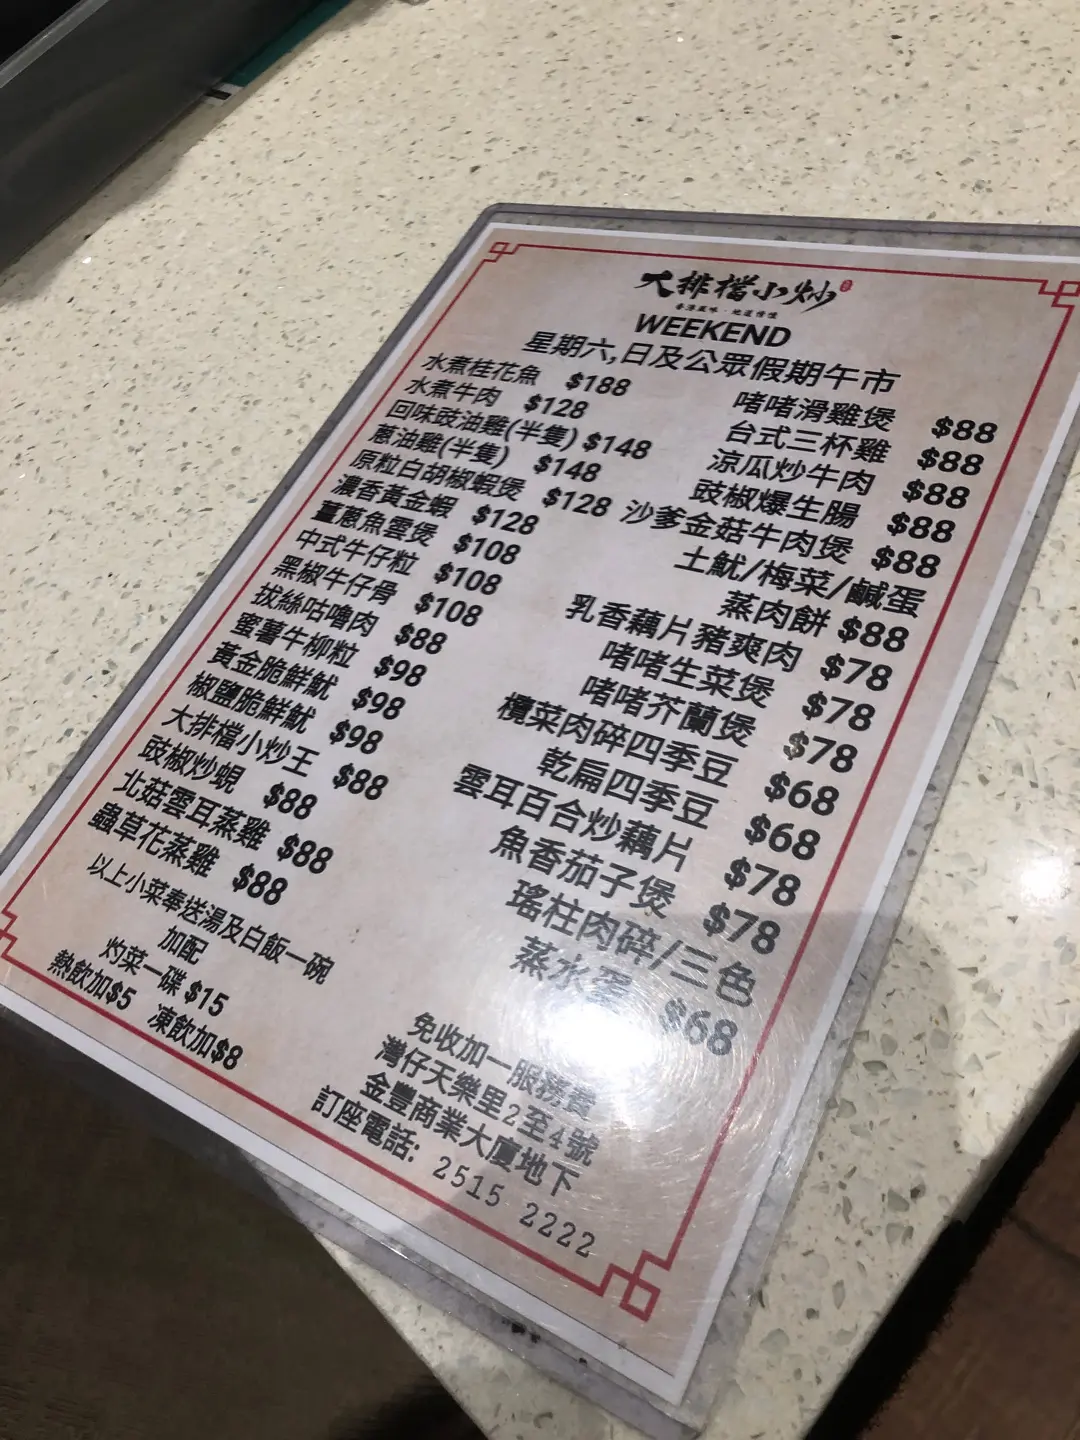 大排檔小炒
WEEKEND
星期六,日及公眾假期午市
水煮桂花魚 $188
水煮牛肉 $128
回味豉油雞(半隻) $148
蔥油雞(半隻) $148
原粒白胡椒蝦煲 $128
濃香黃金蝦 $128
薑蔥魚雲煲 $108
中式牛仔粒 $108
黑椒牛仔骨 $108
拔絲咕嚕肉 $88
蜜薯牛柳粒 $98
黃金脆鮮魷 $98
椒鹽脆鮮魷 $98
大排檔小炒王 $88
豉椒炒蜆 $88
北菇雲耳蒸雞 $88
蟲草花蒸雞 $88
以上小菜奉送湯及白飯一碗
加配
灼菜一碟 $15
熱飲加$5 凍飲加$8
啫啫滑雞煲 $88
台式三杯雞 $88
涼瓜炒牛肉 $88
豉椒爆生腸 $88
沙爹金菇牛肉煲 $88
土魷/梅菜/鹹蛋
蒸肉餅 $88
乳香藕片豬爽肉 $78
啫啫生菜煲 $78
啫啫芥蘭煲 $78
欖菜肉碎四季豆 $68
乾扁四季豆 $68
雲耳百合炒藕片 $78
魚香茄子煲 $78
瑤柱肉碎/三色
蒸水蛋 $68
免收加一服務費
灣仔天樂里2至4號
金豐商業大廈地下
訂座電話: 2515 2222